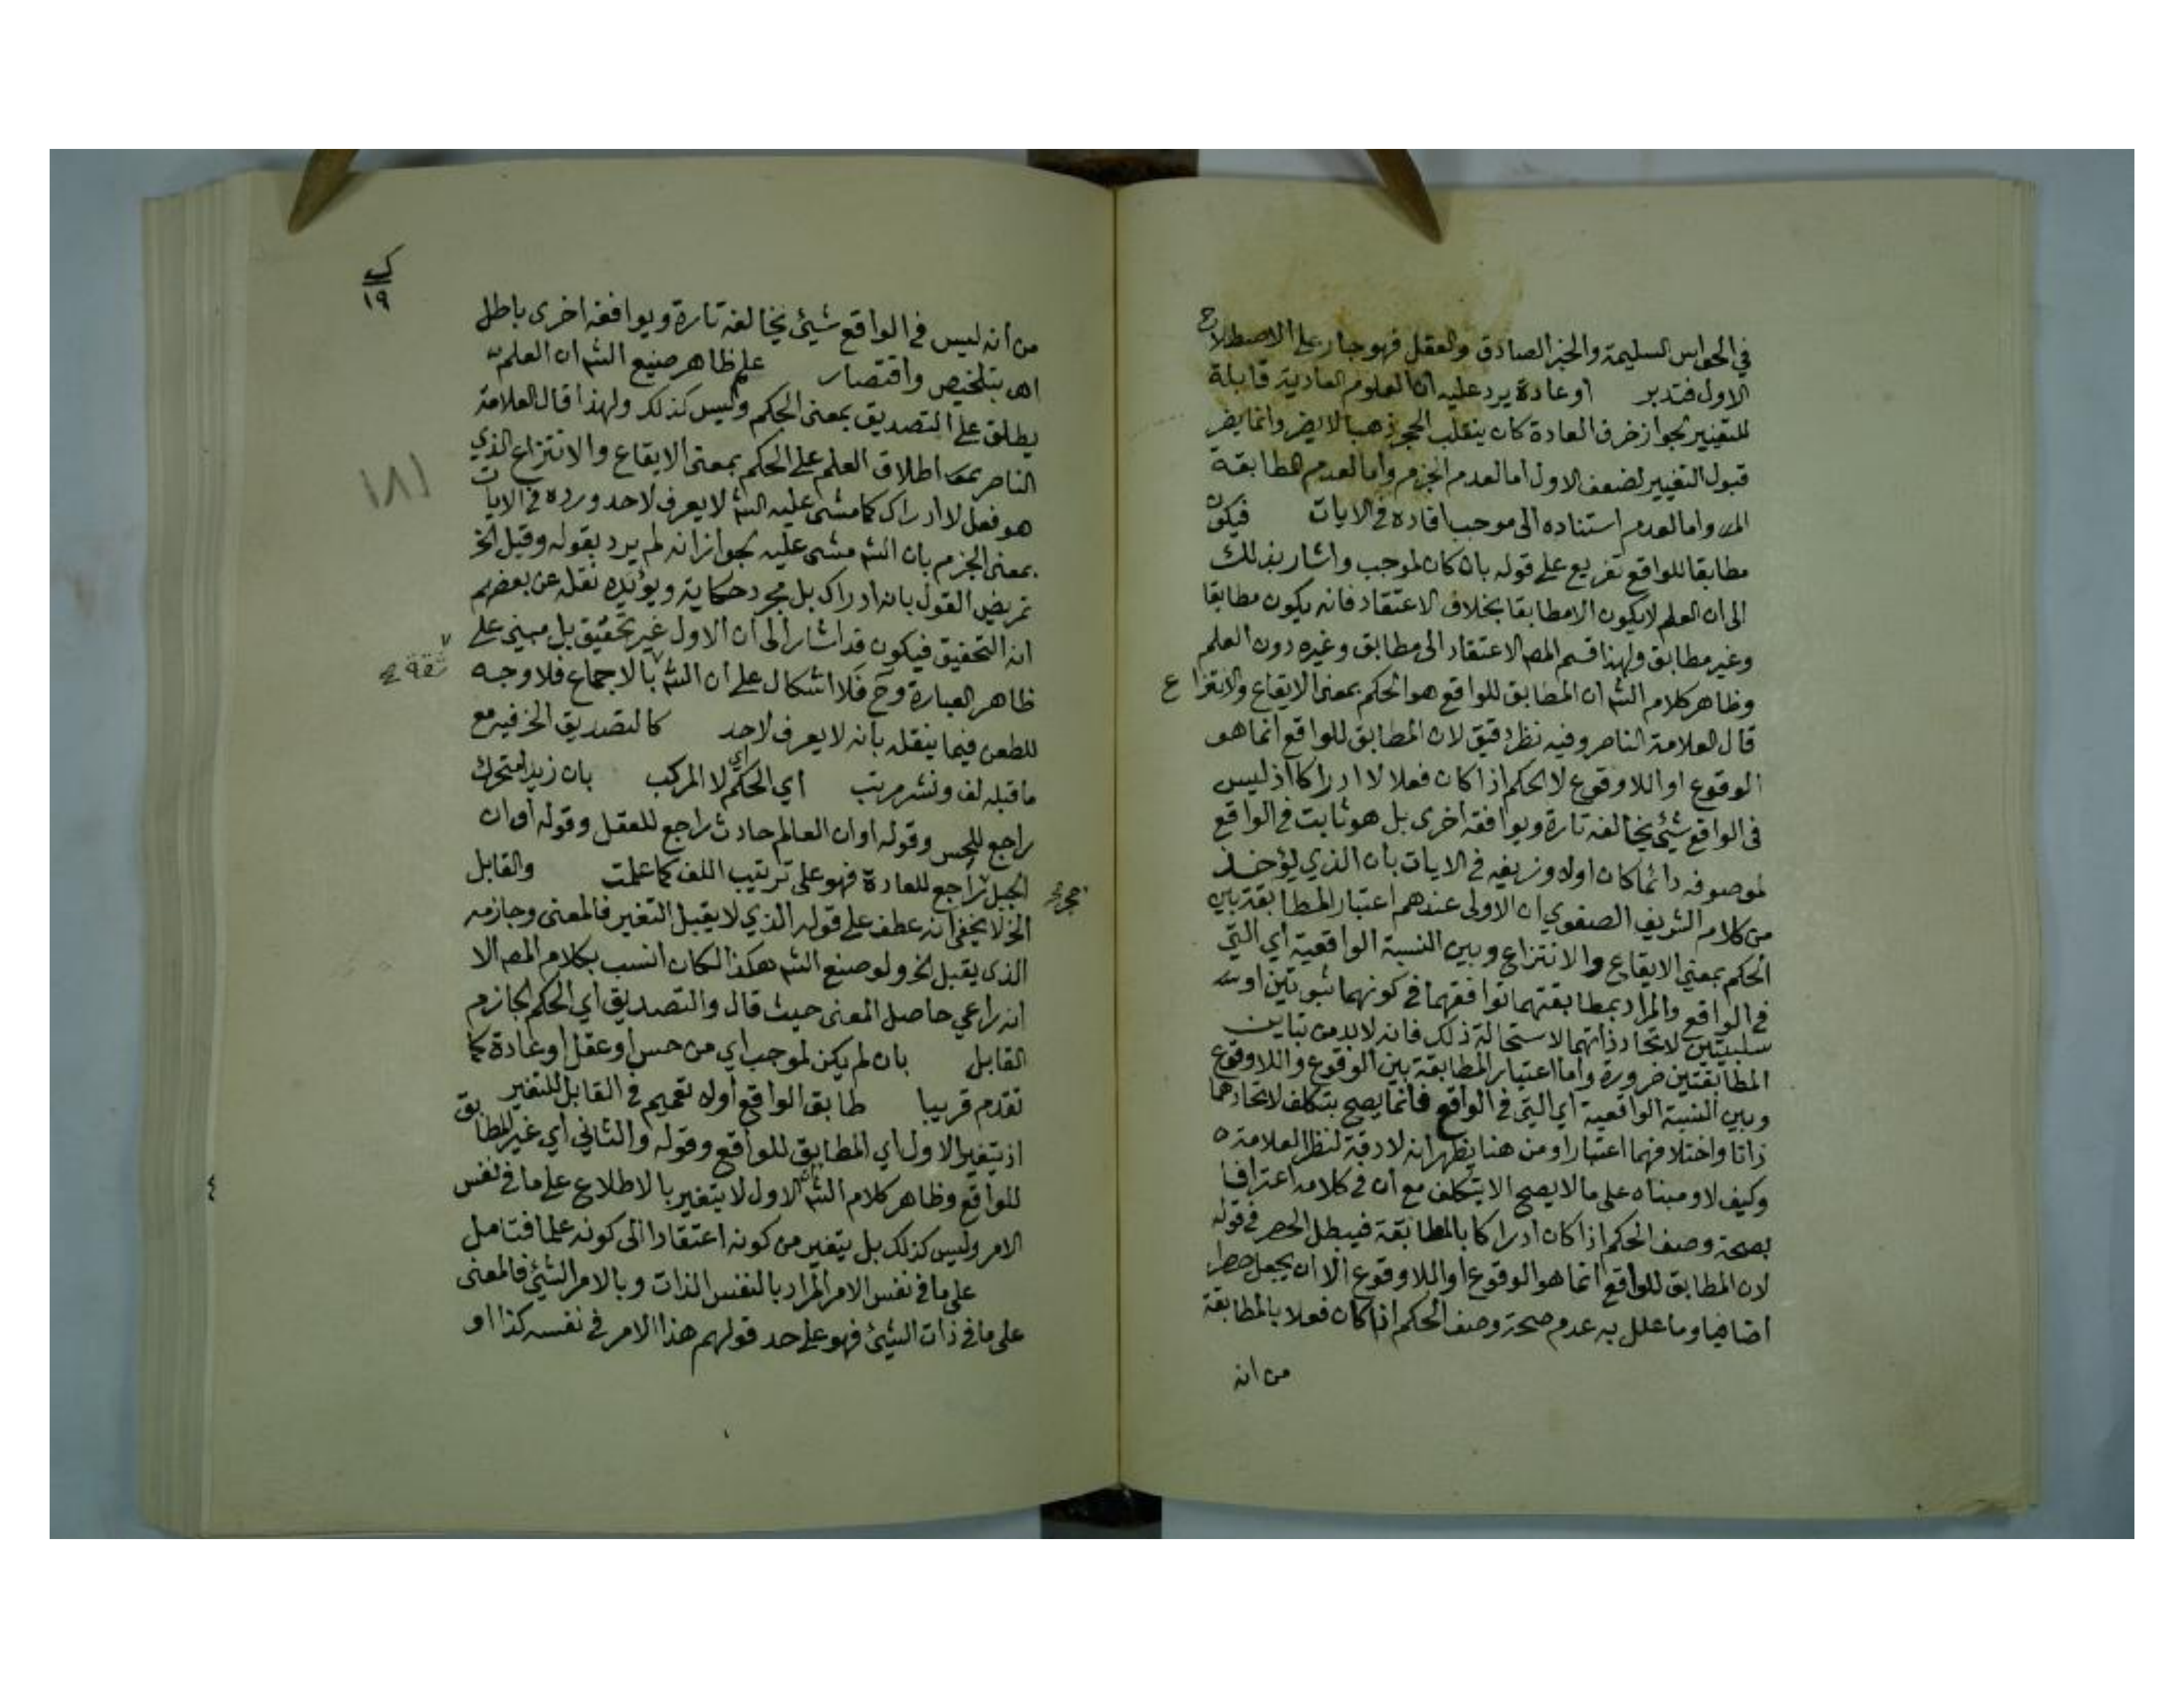 في الحواس السليمة والخبر الصادق والعقل فهو جار على الاصطلاح
الاول فتدبر اوعادة يرد عليه ان العلوم العادية قابلة
للتغيير لجواز خرق العادة كان ينقلب الحجر ذهبا لا يضر وانما يضر
قبول التغيير لضعف الاول اما لعدم الجزم واما لعدم المطابقة
واما لعدم استناده الى موجب افاده في الايات فيكون
مطابقا للواقع تفريع على قوله بان كان لموجب واشار بذلك
الى ان العلم لا يكون الا مطابقا بخلاف الاعتقاد فانه يكون مطابقا
وغير مطابق ولهذا قسم المص الاعتقاد الى مطابق وغيره دون العلم
وظاهر كلام الش ان المطابق للواقع هو الحكم بمعنى الايقاع والانتزاع
قال العلامة الناصر وفيه نظر دقيق لان المطابق للواقع انما هو
الوقوع او اللاوقوع لا الحكم اذا كان فعلا لا ادراكا اذ ليس
في الواقع شيئ يخالفه تارة ويوافقه اخرى بل هو ثابت في الواقع
لموصوفه دائما كان اولا وزيفه في الايات بان الذي يؤخذ
من كلام الشريف الصفوي ان الاولى عندهم اعتبار المطابقة بين
الحكم بمعنى الايقاع والانتزاع وبين النسبة الواقعية اي التي
في الواقع والمراد بمطابقتهما توافقهما في كونهما ثبوتيتين او
سلبيتين لا تحاد ذاتهما لاستحالة ذلك فانه لا بد من تباين
المطابقتين ضرورة واما اعتبار المطابقة بين الوقوع واللاوقوع
وبين النسبة الواقعية اي التي في الواقع فانما يصح بتكلف لاتحادهما
ذاتا واختلافهما اعتبارا ومن هنا يظهر انه لا دقة لنظر العلامة
وكيف لا ومبناه على ما لا يصح الا بتكلف مع ان في كلامه اعترافا
بصحة وصف الحكم اذا كان ادراكا بالمطابقة فيبطل الحصر في قوله
لان المطابق للواقع انما هو الوقوع او اللاوقوع الا ان يجعل حصرا
اضافيا وما علل به عدم صحة وصف الحكم اذا كان فعلا بالمطابقة
من انه
ك
١٩
من انه ليس في الواقع شيئ يخالفه تارة ويوافقه اخرى باطل
اهـ بتلخيص واقتصار على ظاهر صنيع الش ان العلم
يطلق على التصديق بمعنى الحكم وليس كذلك ولهذا قال العلامة
الناصر اطلاق العلم على الحكم بمعنى الايقاع والانتزاع الذي
هو فعل لا ادراك كما مشى عليه الش لا يعرف لاحد ورده في الايات
بمعنى الجزم بان الش مشى عليه لجواز انه لم يرد بقوله وقيل الخ
تمريض القول بانه ادراك بل مجرد حكاية ويؤيده نقله عن بعضهم
انه التحقيق فيكون قد اشار الى ان الاول غير تحقيق بل مبني على
ظاهر العبارة وح فلا اشكال على ان الش بالاجماع فلا وجه
للطعن فيما ينقله بانه لا يعرف لاحد كالتصديق الخ فيه مع
ما قبله لف ونشر مرتب اي الحكم لا المركب بان زيدا متحرك
راجع للحس وقوله او ان العالم حادث راجع للعقل وقوله او ان
الجبل راجع للعادة فهو على ترتيب اللف كما علمت والقابل
الخ لا يخفى انه عطف على قوله الذي لا يقبل التغير فالمعنى وجازمه
الذي يقبل الخ ولو صنع الش هكذا لكان انسب بكلام المص الا
انه راعي حاصل المعنى حيث قال والتصديق اي الحكم الجازم
القابل بان لم يكن لموجب اي من حس او عقل او عادة كما
تقدم قريبا طابق الواقع اولا تعميم في القابل للتغير
اذ يتغير الاول اي المطابق للواقع وقوله والثاني اي غير المطابق
للواقع وظاهر كلام الش ان الاول لا يتغير بالاطلاع على ما في نفس
الامر وليس كذلك بل يتغير من كونه اعتقادا الى كونه علما فتامل
على ما في نفس الامر المراد بالنفس الذات وبالامر الشيئ فالمعنى
على ما في ذات الشيئ فهو على حد قولهم هذا الامر في نفسه كذا او
ثقة
حجر
١٨١